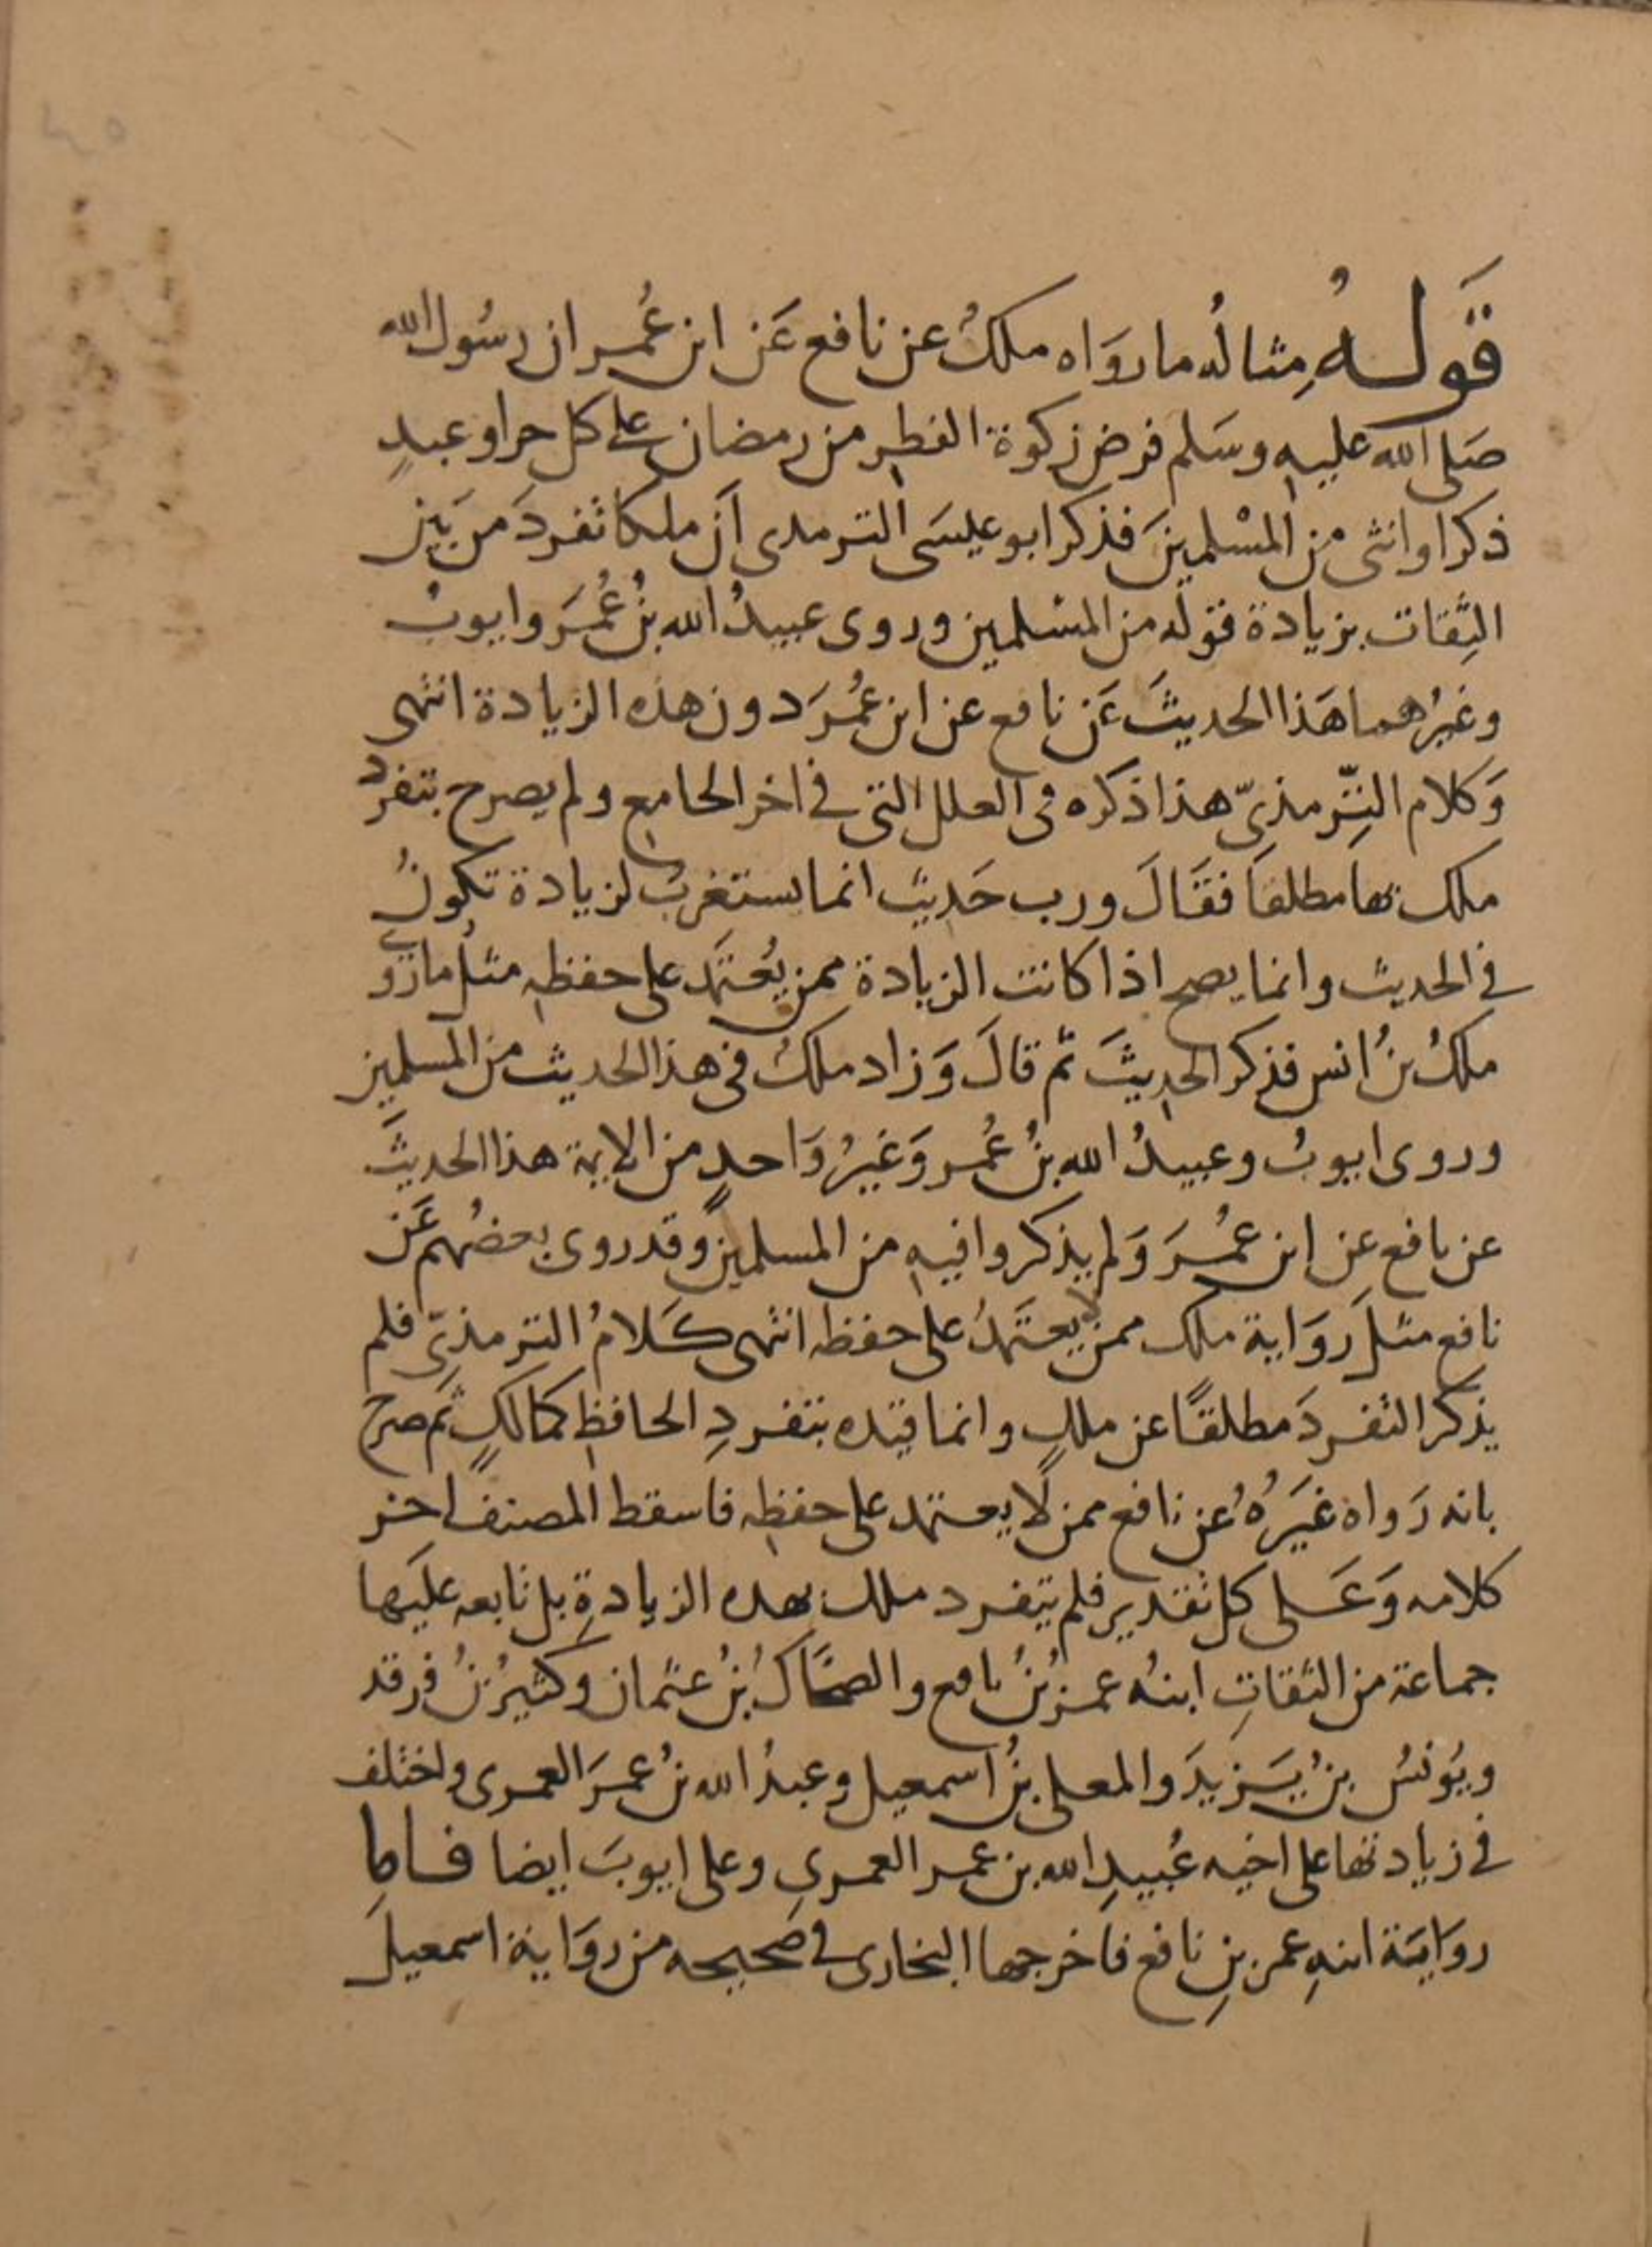 قَولهُ مِثالُه ما روَاه ملكُ عن نافع عَن ابن عُمر ان رسُول الله
صَلى الله عليه وسَلم فرض زكوة الفطر من رمضان على كل حر او عبدٍ
ذكر او انثى من المسْلمينَ فذكر ابو عيسَى الترمدى اَن ملكا تفردَ من بَين
الثِقات بزيادة قوله من المسْلمين وروى عبيدُ الله بنُ عُمَر وايوبُ
وغيرُهما هَذا الحديثَ عَن نافع عن ابن عُمرَ دون هذه الزيادة انتهى
وَكلام التِّرمذىّ هذا ذكره فى العلل التى فى اخر الجامع ولم يصرح بتفرد
ملك بها مطلقاً فقَالَ ورب حَديث انما يستغربُ لزيادة تكونُ
فى الحديث وانما يصح اذا كانت الزيادة ممن يُعتمَد على حفظه مثلُ ما روى
ملكُ بنُ انس فذكر الحديثَ ثم قالَ وَزاد ملكُ فى هذا الحديث من المسلمين
وروى ايوبُ وعبيدُ الله بنُ عُمر وَغيرُ وَاحدٍ من الايمة هذا الحديثَ
عن نافع عن ابن عُمرَ وَلم يذكروا فيه من المسلمين وقد روى بعضُهم عَن
نافع مثلَ روَاية ملك ممن لا يعتَمدُ على حفظه انتهى كَلامُ الترمذىّ فلم
يذكر التفردَ مطلقًا عن ملكٍ وانما قيّده بتفردِ الحافظِ كمالكٍ ثم صرح
بانه رَواهُ غيَرُهُ عن نافع ممن لا يعتمد على حفظه فاسقط المصنف اخر
كلامه وَعَلى كل تقدير فلم يتفرد ملك بهده الزيادةِ بل تابعه عليَها
جماعة من الثقاتِ ابنُه عمرُ بنُ نافع والضحَّاكُ بنُ عثمان وكثيرُ بنُ فرقد
ويُونسُ بنُ يَزيدَ والمعلى بنُ اسمعيل وعبدُ الله بنُ عمرَ العمرى واختلف
فى زيادتها على اخيه عُبيدِ الله بن عمر العمرىِ وعلى ايوبَ ايضا فاما
روايَة ابنهِ عمر بنِ نافع فاخرجها البخارى فى صَحيحه من روَاية اسمعيلَ